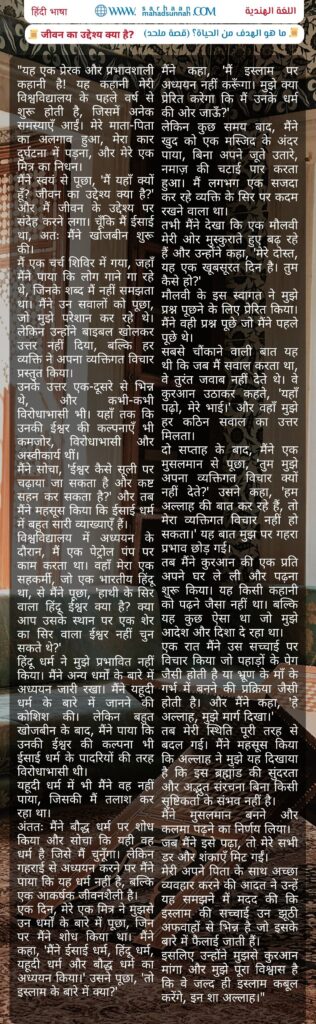 हिंदी भाषा
WWW. sarhaan mahadsunnah .COM
اللغة الهندية
जीवन का उद्देश्य क्या है?
ما هو الهدف من الحياة؟ (قصة ملحد)
"यह एक प्रेरक और प्रभावशाली
कहानी है! यह कहानी मेरी
विश्वविद्यालय के पहले वर्ष से
शुरू होती है, जिसमें अनेक
समस्याएँ आईं। मेरे माता-पिता
का अलगाव हुआ, मेरा कार
दुर्घटना में पड़ना, और मेरे एक
मित्र का निधन।
मैंने स्वयं से पूछा, 'मैं यहाँ क्यों
हूँ? जीवन का उद्देश्य क्या है?'
और मैं जीवन के उद्देश्य पर
संदेह करने लगा। चूँकि मैं ईसाई
था, अतः मैंने खोजबीन शुरू
की।
मैं एक चर्च शिविर में गया, जहाँ
मैंने पाया कि लोग गाने गा रहे
थे, जिनके शब्द मैं नहीं समझता
था। मैंने उन सवालों को पूछा,
जो मुझे परेशान कर रहे थे।
लेकिन उन्होंने बाइबल खोलकर
उत्तर नहीं दिया, बल्कि हर
व्यक्ति ने अपना व्यक्तिगत विचार
प्रस्तुत किया।
उनके उत्तर एक-दूसरे से भिन्न
थे, और कभी-कभी
विरोधाभासी भी। यहाँ तक कि
उनकी ईश्वर की कल्पनाएँ भी
कमजोर, विरोधाभासी और
अस्वीकार्य थीं।
मैंने सोचा, 'ईश्वर कैसे सूली पर
चढ़ाया जा सकता है और कष्ट
सहन कर सकता है?' और तब
मैंने महसूस किया कि ईसाई धर्म
में बहुत सारी व्याख्याएँ हैं।
विश्वविद्यालय में अध्ययन के
दौरान, मैं एक पेट्रोल पंप पर
काम करता था। वहाँ मेरा एक
सहकर्मी, जो एक भारतीय हिंदू
था, से मैंने पूछा, 'हाथी के सिर
वाला हिंदू ईश्वर क्या है? क्या
आप उसके स्थान पर एक शेर
का सिर वाला ईश्वर नहीं चुन
सकते थे?'
हिंदू धर्म ने मुझे प्रभावित नहीं
किया। मैंने अन्य धर्मों के बारे में
अध्ययन जारी रखा। मैंने यहूदी
धर्म के बारे में जानने की
कोशिश की। लेकिन बहुत
खोजबीन के बाद, मैंने पाया कि
उनकी ईश्वर की कल्पना भी
ईसाई धर्म के पादरियों की तरह
विरोधाभासी थी।
यहूदी धर्म में भी मैंने वह नहीं
पाया, जिसकी मैं तलाश कर
रहा था।
अंततः मैंने बौद्ध धर्म पर शोध
किया और सोचा कि यही वह
धर्म है जिसे मैं चुनूँगा। लेकिन
गहराई से अध्ययन करने पर मैंने
पाया कि यह धर्म नहीं है, बल्कि
एक आकर्षक जीवनशैली है।
एक दिन, मेरे एक मित्र ने मुझसे
उन धर्मों के बारे में पूछा, जिन
पर मैंने शोध किया था। मैंने
कहा, 'मैंने ईसाई धर्म, हिंदू धर्म,
यहूदी धर्म और बौद्ध धर्म का
अध्ययन किया।' उसने पूछा, 'तो
इस्लाम के बारे में क्या?'
मैंने कहा, 'मैं इस्लाम पर
अध्ययन नहीं करूँगा। मुझे क्या
प्रेरित करेगा कि मैं उनके धर्म
की ओर जाऊँ?'
लेकिन कुछ समय बाद, मैंने
खुद को एक मस्जिद के अंदर
पाया, बिना अपने जूते उतारे,
नमाज़ की चटाई पार करता
हुआ। मैं लगभग एक सजदा
कर रहे व्यक्ति के सिर पर कदम
रखने वाला था।
तभी मैंने देखा कि एक मौलवी
मेरी ओर मुस्कुराते हुए बढ़ रहे
हैं और उन्होंने कहा, 'मेरे दोस्त,
यह एक खूबसूरत दिन है। तुम
कैसे हो?'
मौलवी के इस स्वागत ने मुझे
प्रश्न पूछने के लिए प्रेरित किया।
मैंने वही प्रश्न पूछे जो मैंने पहले
पूछे थे।
सबसे चौंकाने वाली बात यह
थी कि जब मैं सवाल करता था,
वे तुरंत जवाब नहीं देते थे। वे
कुरआन उठाकर कहते, 'यहाँ
पढ़ो, मेरे भाई।' और वहाँ मुझे
हर कठिन सवाल का उत्तर
मिलता।
दो सप्ताह के बाद, मैंने एक
मुसलमान से पूछा, 'तुम मुझे
अपना व्यक्तिगत विचार क्यों
नहीं देते?' उसने कहा, 'हम
अल्लाह की बात कर रहे हैं, तो
मेरा व्यक्तिगत विचार नहीं हो
सकता।' यह बात मुझ पर गहरा
प्रभाव छोड़ गई।
तब मैंने कुरआन की एक प्रति
अपने घर ले ली और पढ़ना
शुरू किया। यह किसी कहानी
को पढ़ने जैसा नहीं था। बल्कि
यह कुछ ऐसा था जो मुझे
आदेश और दिशा दे रहा था।
एक रात मैंने उस सच्चाई पर
विचार किया जो पहाड़ों के पेग
जैसी होती है या भ्रूण के माँ के
गर्भ में बनने की प्रक्रिया जैसी
होती है। और मैंने कहा, 'हे
अल्लाह, मुझे मार्ग दिखा।'
तब मेरी स्थिति पूरी तरह से
बदल गई। मैंने महसूस किया
कि अल्लाह ने मुझे यह दिखाया
है कि इस ब्रह्मांड की सुंदरता
और अद्भुत संरचना बिना किसी
सृष्टिकर्ता के संभव नहीं है।
मैंने मुसलमान बनने और
कलमा पढ़ने का निर्णय लिया।
जब मैंने इसे पढ़ा, तो मेरे सभी
डर और शंकाएँ मिट गईं।
मेरी अपने पिता के साथ अच्छा
व्यवहार करने की आदत ने उन्हें
यह समझने में मदद की कि
इस्लाम की सच्चाई उन झूठी
अफवाहों से भिन्न है जो इसके
बारे में फैलाई जाती हैं।
इसलिए उन्होंने मुझसे कुरआन
मांगा और मुझे पूरा विश्वास है
कि वे जल्द ही इस्लाम कबूल
करेंगे, इन शा अल्लाह।"